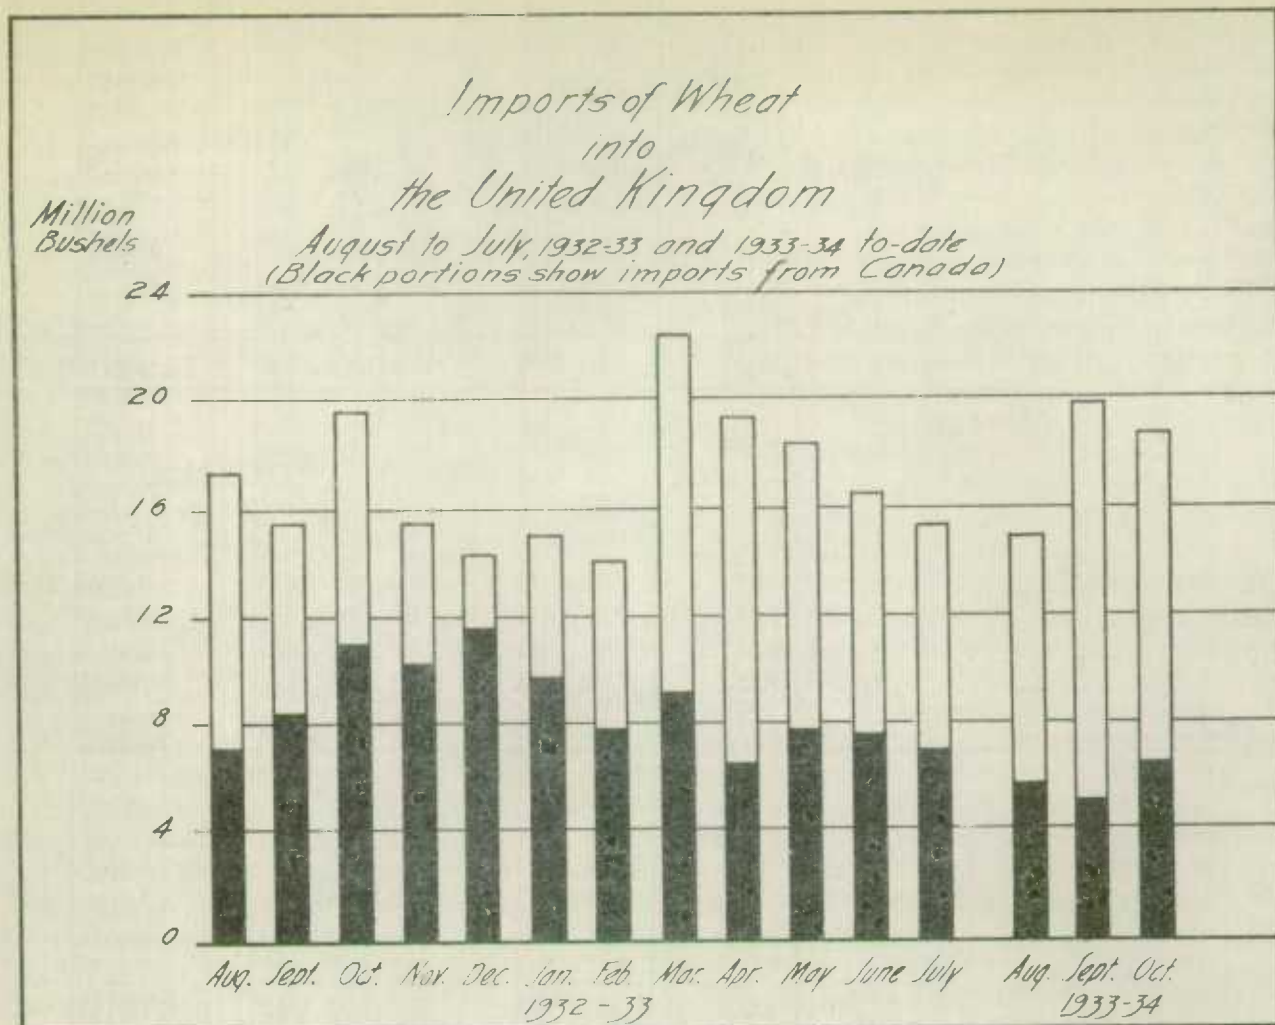 Imports of Wheat
into
the United Kingdom
August to July, 1932-33 and 1933-34 to-date
(Black portions show imports from Canada)
Million
Bushels
24
20
16
12
8
4
0
Aug. Sept. Oct. Nov. Dec. Jan. Feb. Mar. Apr. May June July Aug. Sept. Oct.
1932-33 1933-34